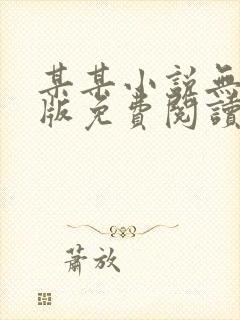 某某小說無
版免費閱讀
蕭放